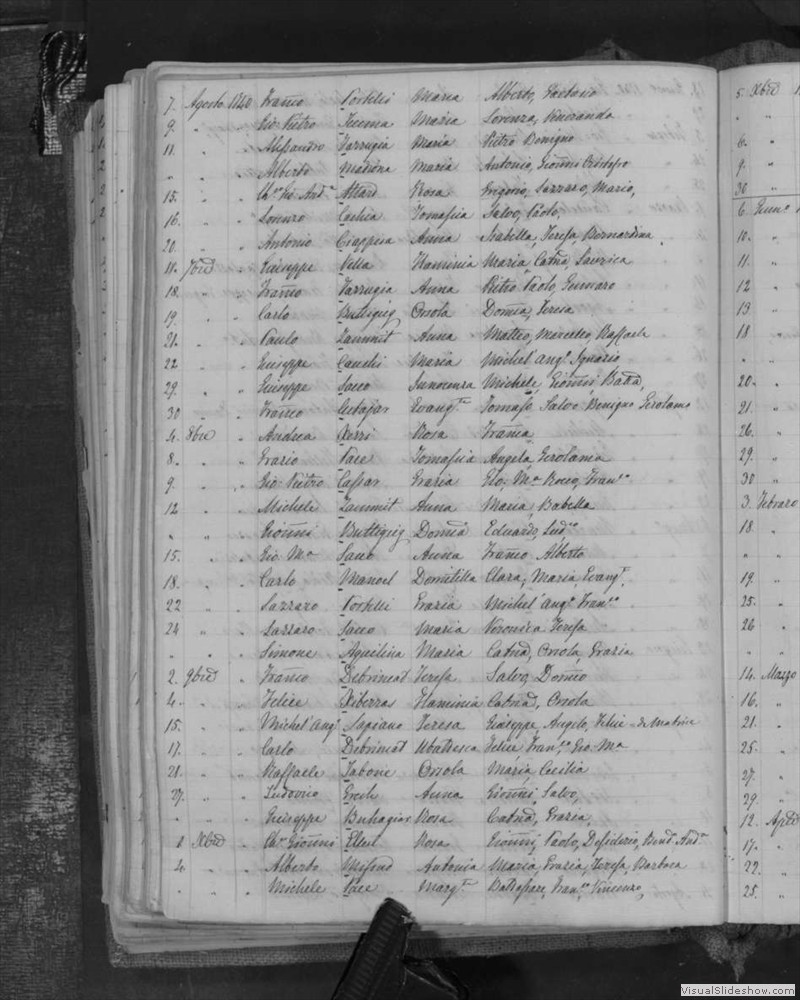 7. Agosto 1840 Franco Portelli Maria Alberto, Gaetano
9. " " Gio: Pietro Maria Lorenza, Veneranda
11. " " Alessandro Farrugia Maria Pietro Benigno
" " " Alberto Madiona Maria Antonio, Gioñni
15. " " Attard Rosa Grigorio, Lazzaro, Mario,
16. " " Lorenzo Cachia Tomasina Salvo, Paolo,
20. " " Antonio Ciappesa Anna Isabella, Teresa, Bernardina
11. 7bre " Giuseppe Vella Flaminia Maria, Catna,
18. " " Franco Farrugia Anna Pietro Paolo, Gennaro
19. " " Carlo Buttigieg Orsola Domca, Teresa
21. " " Paulo Zammit Anna Matteo, Marcello, Raffaele
22 " " Giuseppe Maria Michel'Ango Ignazio
29. " " Giuseppe Sacco Innocenza Michele, Gioñni, Batta,
30 " " Franco Evangta Tomaso Salvo Benigno Gerolamo
4. 8bre " Andrea Xerri Rosa Franca
8. " " Grazio Pace Tomasina Angela, Gerolama
9. " " Gio: Pietro Cassar Grazia Gio: Ma Franco
12 " " Michele Zammit Anna Maria, Babella
" " " Gioñni Buttigieg Domca Eduardo,
15. " " Gio: Ma Sacco Anna Franco Alberto
18. " " Carlo Manoel Domitilla Clara, Maria, Evangta
22 " " Lazzaro Portelli Grazia Michel'Ango Franco
24 " " Lazzaro Sacco Maria Veronica Teresa
" " " Simone Aquilina Maria Catna, Orsola, Grazia
2. 9bre " Franco Debrincat Teresa Salvo, Domco
4. " " Felice Xiberras Flaminia Catna, Orsola
15. " " Michel'Ango Sapiano Teresa Giuseppe, Angelo, Felice
17. " " Carlo Debrincat Ubaldesca Felice Franco Gio: Ma
21. " " Raffaele Tabone Orsola Maria, Cecilia
27. " " Ludovico Grech Anna Gioñni, Salvo,
" " " Giuseppe Buhagiar Rosa Catna, Grazia,
1 Xbre " Gioñni Ellul Rosa Gioñni, Paolo, Desiderio,
4. " " Alberto Mifsud Antonia Maria, Grazia, Teresa, Barbara
" " " Michele Pace Margta Baldassare, Franco, Vincenzo,
5 Xbre
" "
6. "
9. "
30 "
6
10. "
11. "
12 "
13. "
18 "
" "
20. "
21. "
26. "
29. "
30 "
3 Febraro
18. "
" "
19. "
25. "
26 "
" "
14. Marzo
16. "
21. "
25. "
27. "
29. "
12. Aple
17. "
22. "
25. "
VisualSlideshow.com